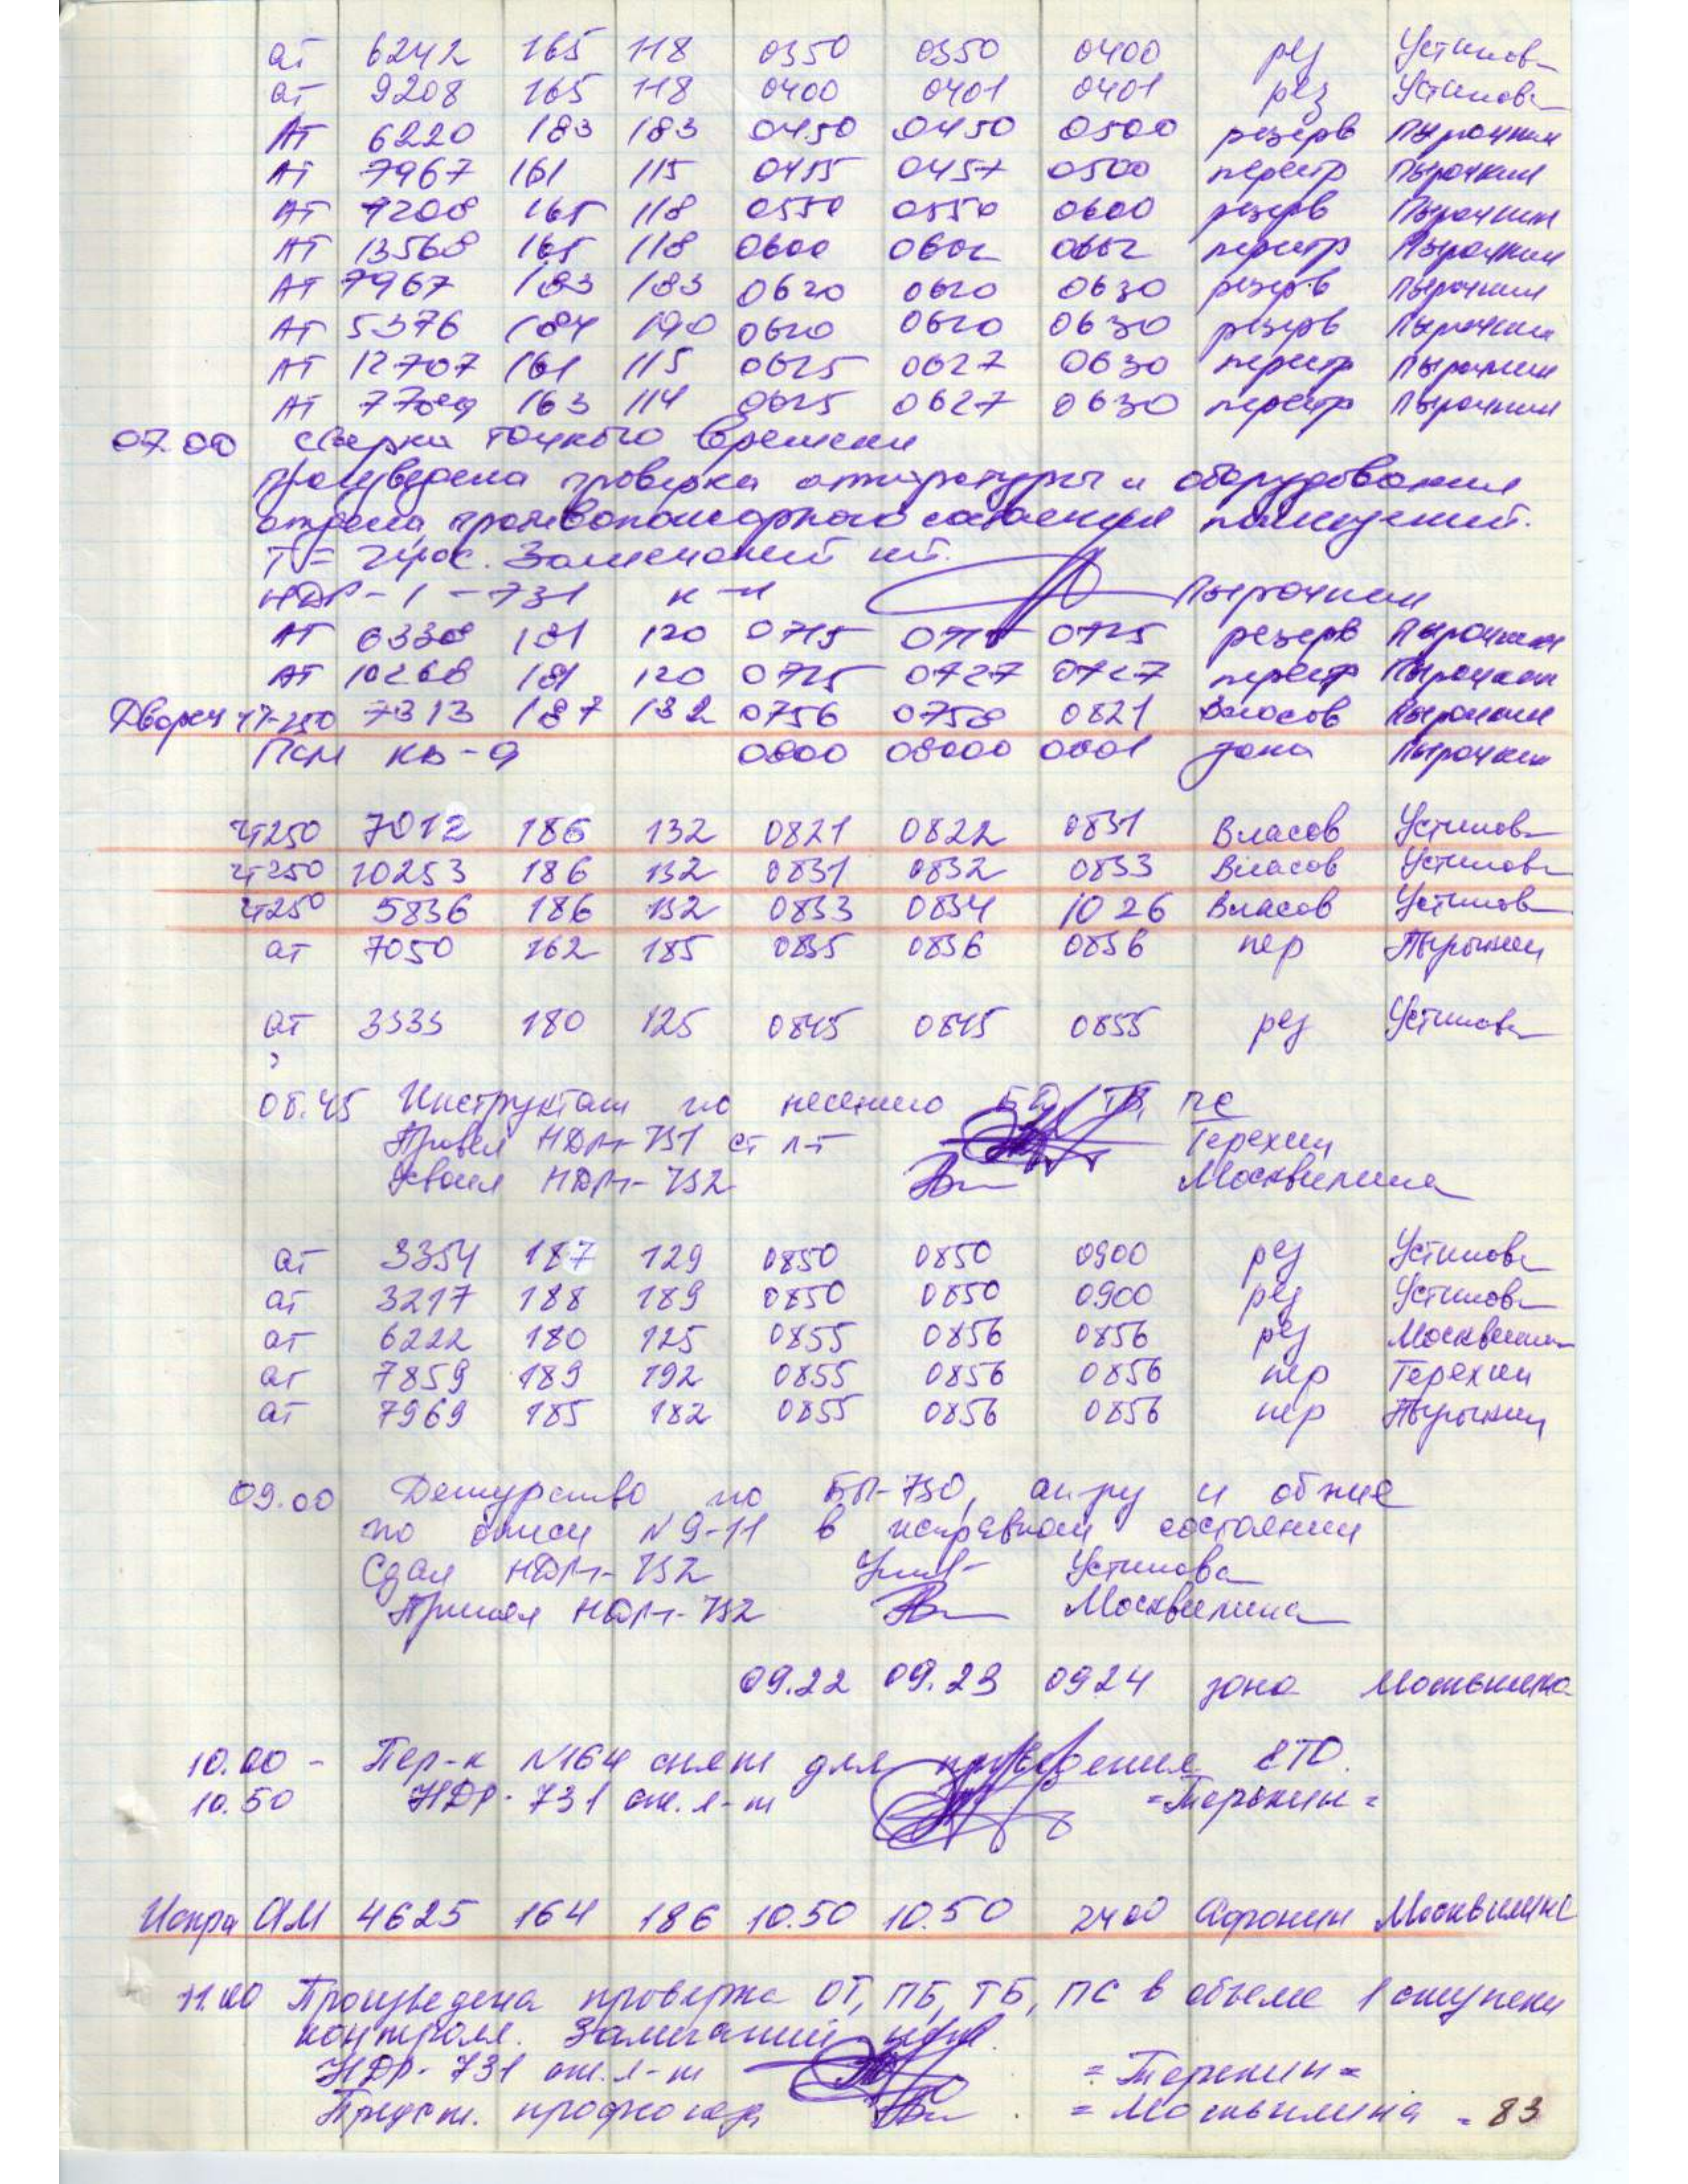 ат 6242 165 118 0350 0350 0400 рез Устинова
ат 9208 165 118 0400 0401 0401 рез Устинова
АТ 6220 183 183 0450 0450 0500 резерв Пырочкин
АТ 7967 161 115 0455 0457 0500 перестр Пырочкин
АТ 9208 165 118 0550 0550 0600 резерв Пырочкин
АТ 13568 165 118 0600 0602 0602 перестр Пырочкин
АТ 7967 183 183 0620 0620 0630 резерв Пырочкин
АТ 5376 184 190 0620 0620 0630 резерв Пырочкин
АТ 12707 161 115 0625 0627 0630 перестр Пырочкин
АТ 163 114 0625 0627 0630 перестр Пырочкин
07.00 сверка точного времени
произведена проверка аппаратуры и оборудования
отдела, противопожарного состояния помещений.
Замечаний нет.
НДР-1-731 к-н Пырочкин
АТ 6338 181 120 0715 0715 0725 резерв Пырочкин
АТ 10268 181 120 0725 0727 0727 перестр Пырочкин
Дворец ЧТ-250 7313 187 132 0756 0758 0821 Власов Пырочкин
ПСМ КВ-9 0800 08000 0801 зона Пырочкин
ЧТ250 7012 186 132 0821 0822 0831 Власов Устинова
ЧТ250 10253 186 132 0831 0832 0833 Власов Устинова
ЧТ250 5836 186 132 0833 0834 1026 Власов Устинова
ат 7050 162 185 0835 0836 0836 пер Пырочкин
ат 3333 180 125 0845 0845 0855 рез Устинова
08.45 Инструктаж по несению БД, ТБ, ПС
Провел НДР-731 ст л-т Терехин
Усвоил НДРТ-732 Москвилина
ат 3354 187 129 0850 0850 0900 рез Устинова
ат 3217 188 189 0850 0850 0900 рез Устинова
ат 6222 180 125 0855 0856 0856 рез Москвилина
ат 7859 189 192 0855 0856 0856 пер Терехин
ат 7969 185 182 0855 0856 0856 пер Пырочкин
09.00 Дежурство по БП-730, ап-ру и обж-ие
по описи №9-11 в исправном состоянии
Сдал НДРТ-732 Устинова
Принял НДРТ-732 Москвилина
09.22 09.23 0924 зона Москвилина
10.00 - Пер-к №164 снят для проведения ЕТО.
10.50 НДР-731 ст. л-т =Терехин=
Искра АМ 4625 164 186 10.50 10.50 2400 Афонин Москвилина
11.00 Произведена проверка ОТ, ПБ, ТБ, ПС в объеме 1 ступени
контроля. Замечаний нет.
НДР-731 ст. л-т =Терехин=
Предст. профкома =Москвилина=
83